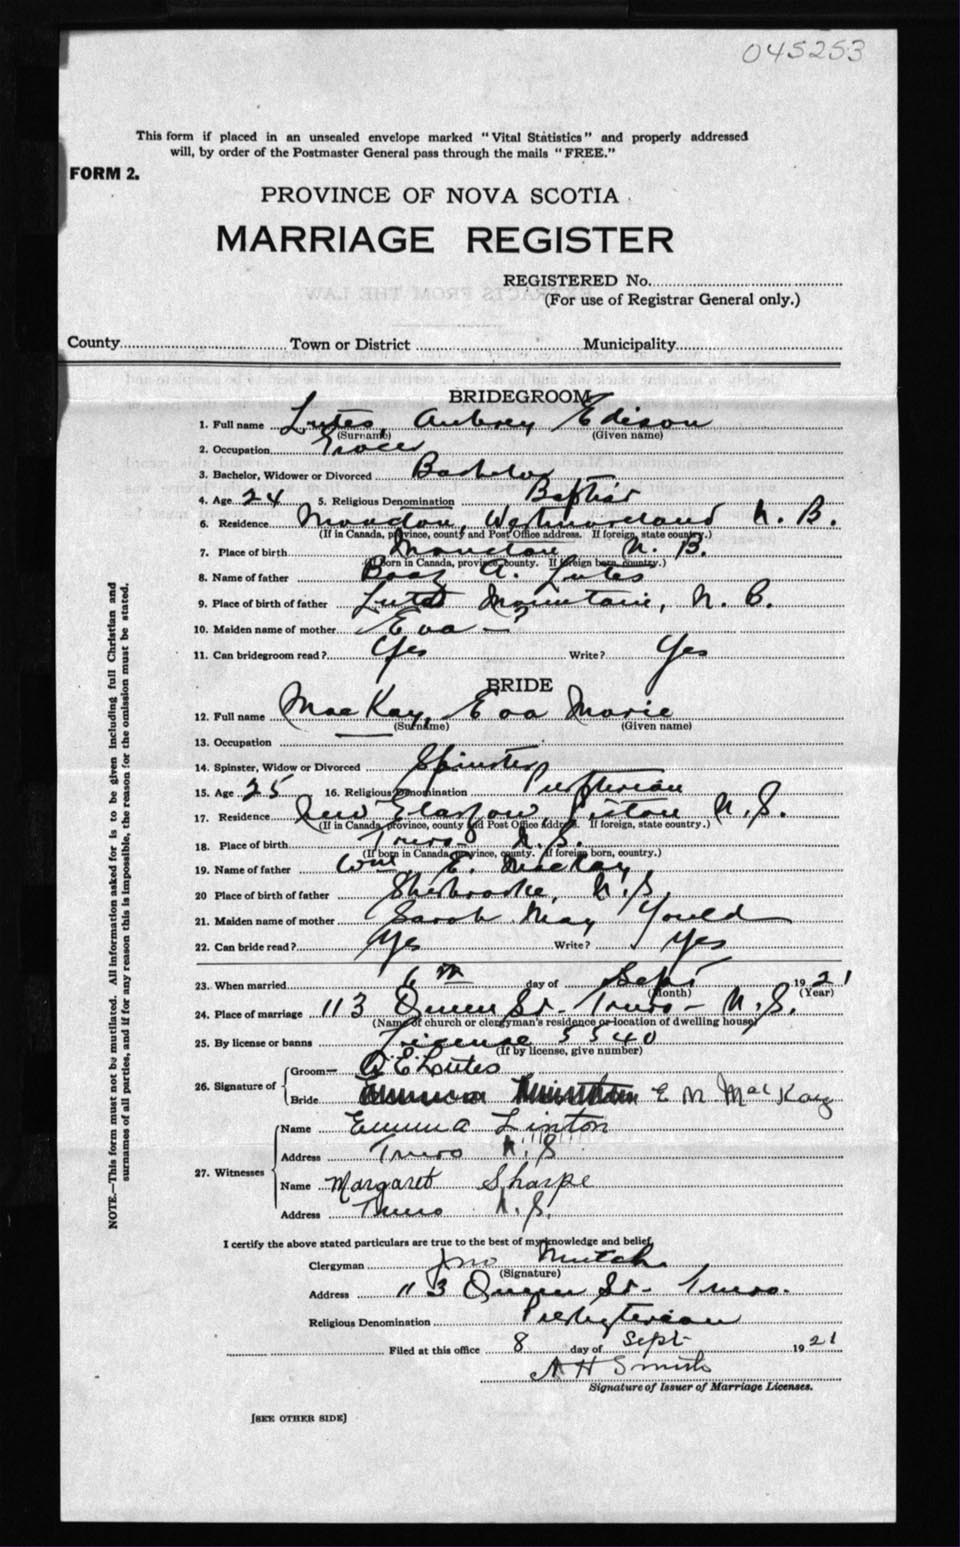 045253
This form if placed in an unsealed envelope marked "Vital Statistics" and properly addressed
will, by order of the Postmaster General pass through the mails "FREE."
FORM 2.
PROVINCE OF NOVA SCOTIA
MARRIAGE REGISTER
REGISTERED No.
(For use of Registrar General only.)
County Town or District Municipality
BRIDEGROOM
1. Full name Lutes, Aubrey Edison
(Surname) (Given name)
2. Occupation Grocer
3. Bachelor, Widower or Divorced Bachelor
4. Age 24 5. Religious Denomination Baptist
6. Residence Moncton, Westmoreland N. B.
(If in Canada, province, county and Post Office address. If foreign, state country.)
7. Place of birth Moncton N. B.
(If born in Canada, province, county. If foreign born, country.)
8. Name of father Boaz A. Lutes
9. Place of birth of father Lutes Mountain, N. B.
10. Maiden name of mother Eva — ?
11. Can bridegroom read? Yes Write? Yes
BRIDE
12. Full name MacKay, Eva Marie
(Surname) (Given name)
13. Occupation
14. Spinster, Widow or Divorced Spinster
15. Age 25 16. Religious Denomination Presbyterian
17. Residence New Glasgow, Pictou N. S.
(If in Canada, province, county and Post Office address. If foreign, state country.)
18. Place of birth Truro N. S.
(If born in Canada, province, county. If foreign born, country.)
19. Name of father Wm E. MacKay
20 Place of birth of father Sherbrooke, N. S.
21. Maiden name of mother Sarah May Yould
22. Can bride read? Yes Write? Yes
23. When married 6th day of Sept 1921
(Month) (Year)
24. Place of marriage 113 Queen St. Truro — N. S.
(Name of church or clergyman's residence or location of dwelling house)
25. By license or banns License 5540
(If by license, give number)
26. Signature of Groom— A. E. Lutes
Bride E M MacKay
27. Witnesses Name Emma Linton
Address Truro N. S
Name Margaret Sharpe
Address Truro N. S.
I certify the above stated particulars are true to the best of my knowledge and belief.
Clergyman Jno Mutch
(Signature)
Address 113 Queen St. Truro.
Religious Denomination Presbyterian
Filed at this office 8 day of Sept 1921
A H Smith
Signature of Issuer of Marriage Licenses.
[SEE OTHER SIDE]
NOTE.—This form must not be mutilated. All information asked for is to be given including full Christian and
surnames of all parties, and if for any reason this is impossible, the reason for the omission must be stated.